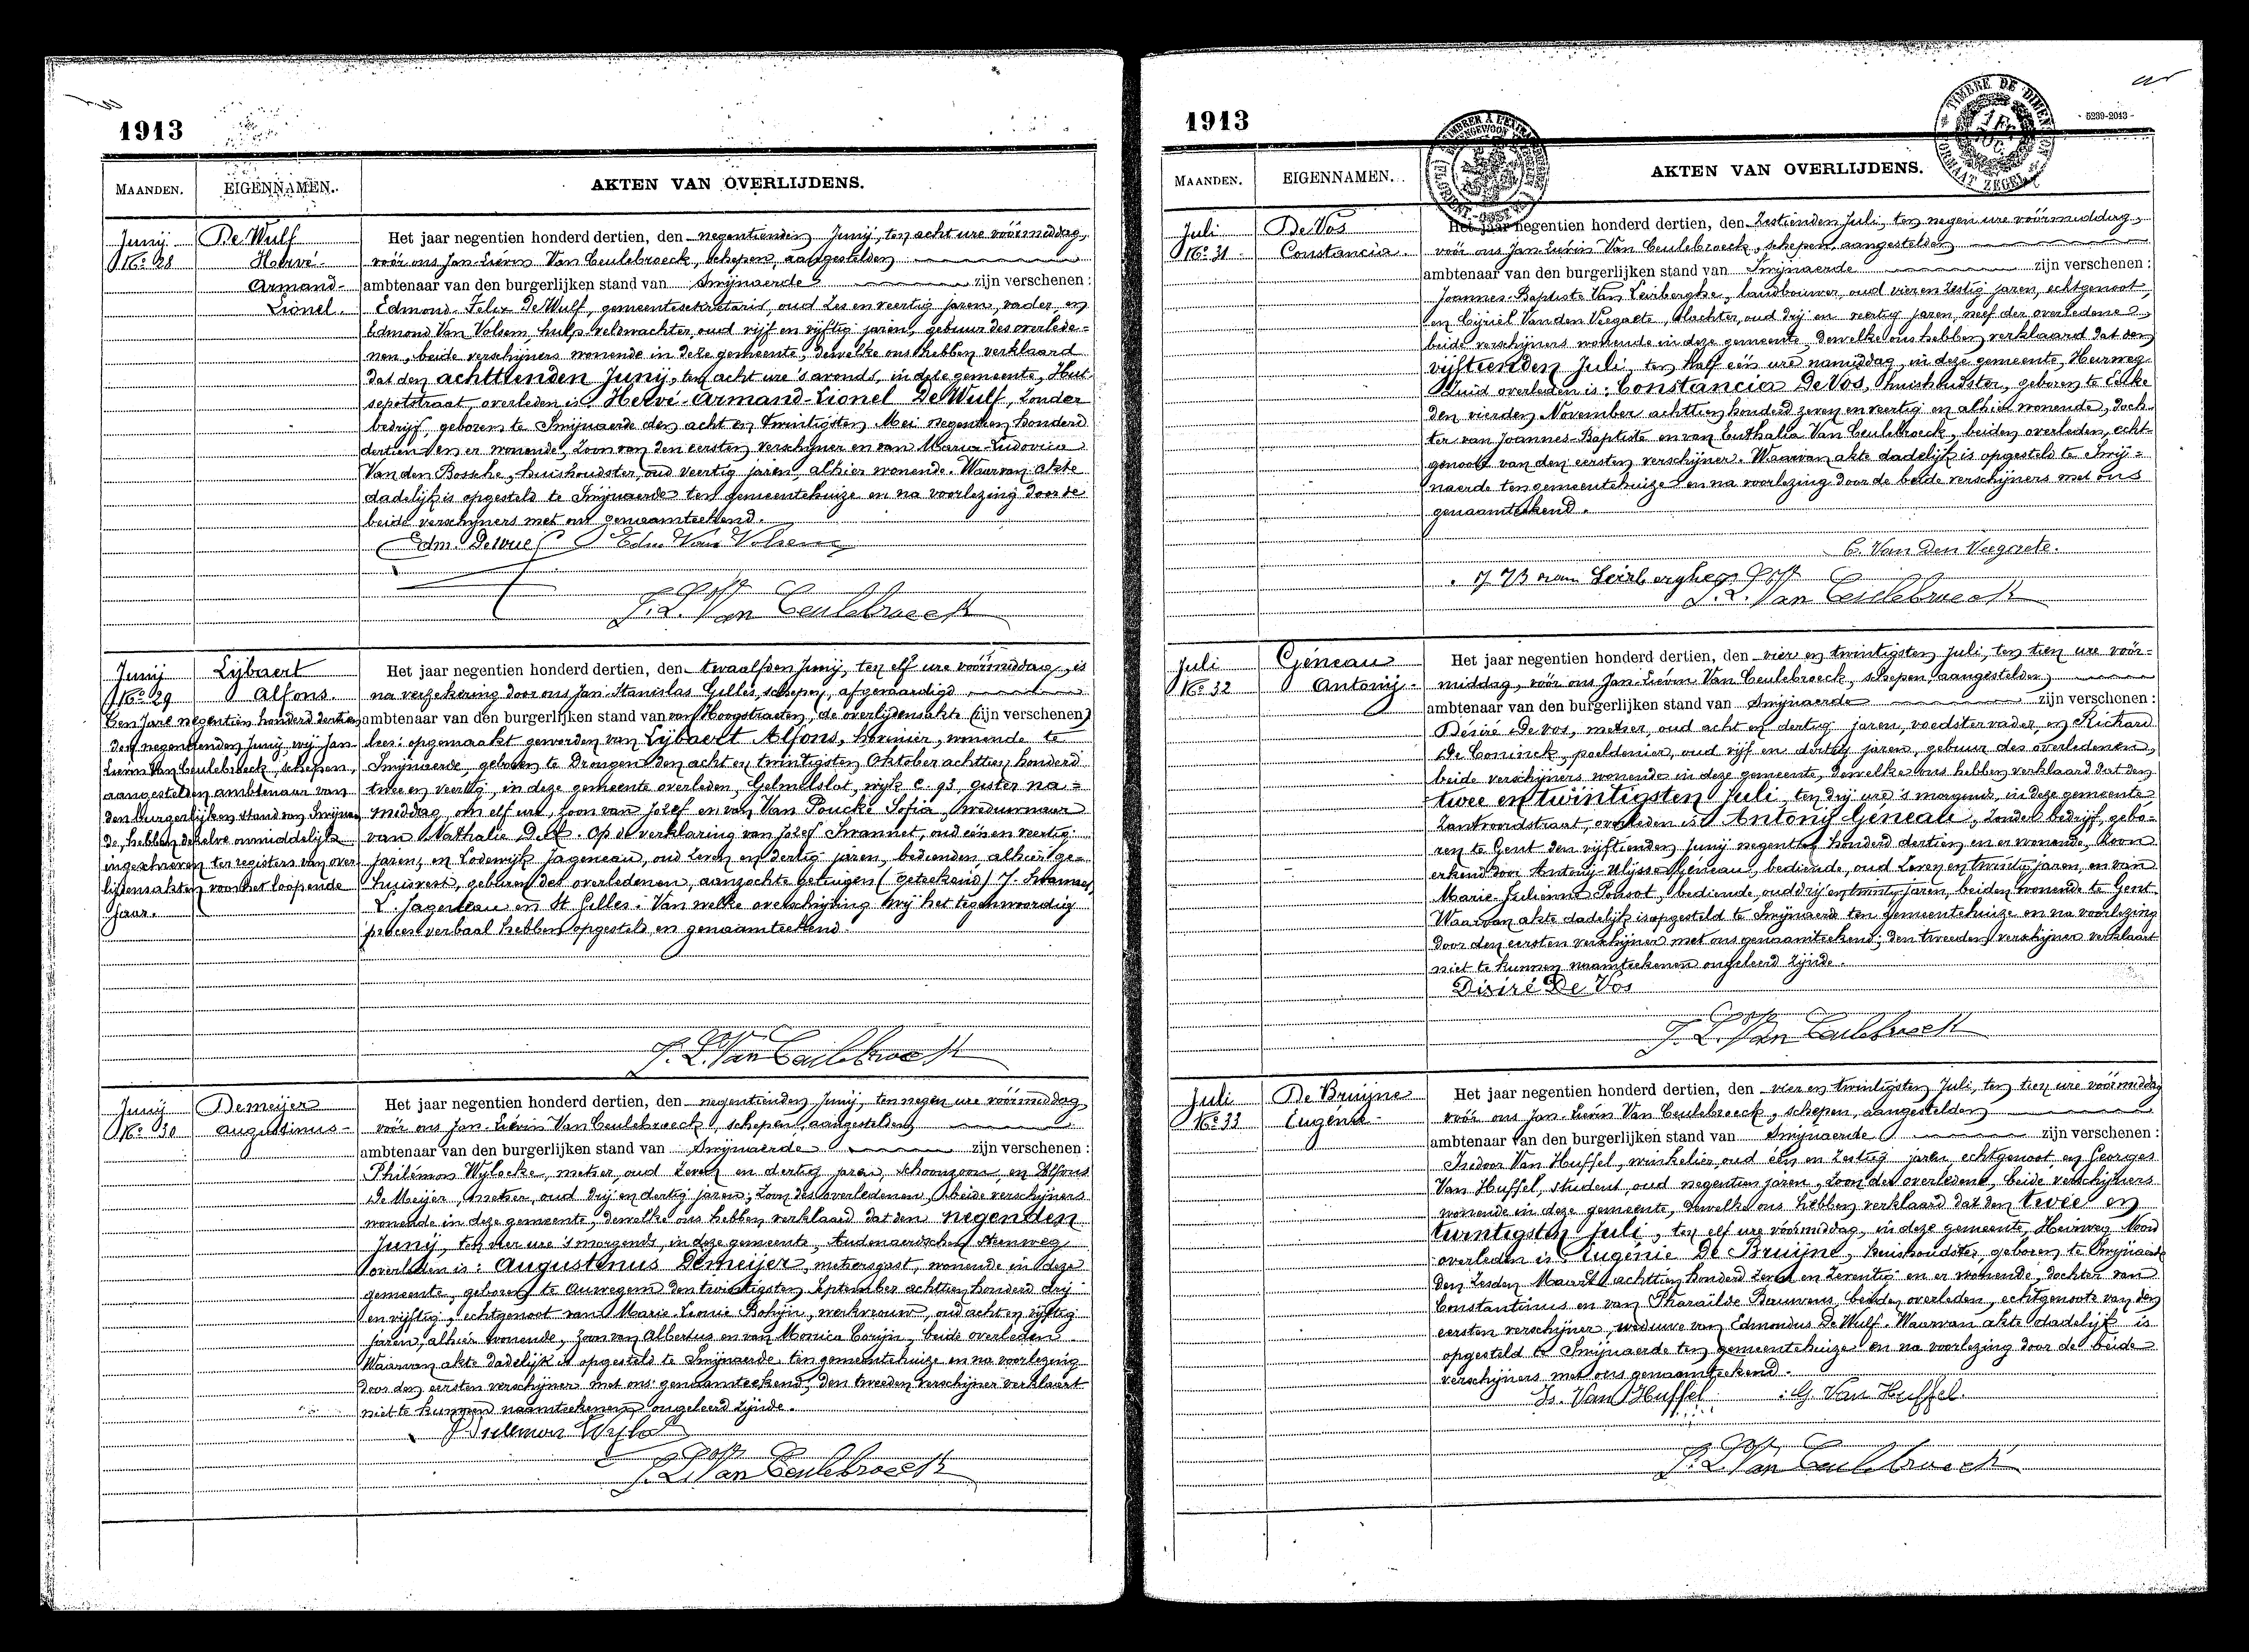 1913
MAANDEN.
EIGENNAMEN.
AKTEN VAN OVERLIJDENS.
Junij
No 28
De Wulf
Hervé
Armand-
Lionel.
Het jaar negentien honderd dertien, den negentienden Junij, ten acht ure vóórmiddag,
vóór ons Jan-Lievin Van Ceulebroeck, schepen, aangestelden
ambtenaar van den burgerlijken stand van Swijnaerde zijn verschenen:
Edmond-Felix De Wulf, gemeentesekretaris, oud zes en veertig jaren, vader, en
Edmond Van Volsem, hulp veldwachter, oud vijf en vijftig jaren, gebuur des overlede-
nen, beide verschijners wonende in deze gemeente, dewelke ons hebben verklaard
dat den achttienden Junij, ten acht ure 's avonds, in deze gemeente, Hut-
sepotstraat, overleden is: Hervé-Armand-Lionel De Wulf, zonder
bedrijf, geboren te Swijnaerde den acht en twintigsten Mei negentien honderd
dertien en er wonende, zoon van den eersten verschijner en van Maria Ludovica
Van den Bossche, huishoudster, oud veertig jaren, alhier wonende. Waarvan akte
dadelijk is opgesteld te Swijnaerde ten gemeentehuize en na voorlezing door de
beide verschijners met ons genaamteekend.
Edm. Dewulf Edm Van Volsem
J. L. Van Ceulebroeck
Junij
No 29
Lijbaert
Alfons.
Ten jare negentien honderd dertien
den negentienden Junij, wij Jan-
Lievin Van Ceulebroeck, schepen,
aangestelden ambtenaar van
den burgerlijken stand van Swijnaer-
de, hebben dezelve onmiddelijk
ingeschreven ter registers van over-
lijdensakten voor het loopende
jaar.
Het jaar negentien honderd dertien, den twaalfden Junij, ten elf ure vóórmiddag, is
na verzekering door ons Jan Stanislas Gilles, schepen, afgevaardigd
ambtenaar van den burgerlijken stand van van Hoogstraeten, de overlijdensakte (zijn verschenen)
lees: opgemaakt geworden van Lijbaert Alfons, hovenier, wonende te
Swijnaerde, geboren te Drongen den acht en twintigsten Oktober achttien honderd
twee en veertig, in deze gemeente overleden, Gelmelslot, wijk C. 93, gister na-
middag, om elf ure, zoon van Jozef en van Van Poucke Sofia, weduwnaar
van Nathalie . Op de verklaring van Jozef Swannet, oud een en veertig
jaren, en Lodewijk Jageneau, oud zeven en dertig jaren, bedienden, alhier ge-
huisvest, geburen des overledenen, aanzochte getuigen (geteekend) J. Swannet,
L. Jageneau en St Gilles. Van welke overschrijving wij het tegenwoordig
proces verbaal hebben opgesteld en genaamteekend.
J. L. Van Ceulebroeck
Junij
No 30
Demeijer
Augustinus-
Het jaar negentien honderd dertien, den negentienden Junij, ten negen ure vóórmiddag
vóór ons Jan-Lievin Van Ceulebroeck, schepen, aangestelden
ambtenaar van den burgerlijken stand van Swijnaerde zijn verschenen:
Philémon Wylocke, metser, oud zeven en dertig jaren, schoonzoon, en Alfons
De Meijer, metser, oud drij en dertig jaren, zoon des overledenen, beide verschijners
wonende in deze gemeente, dewelke ons hebben verklaard dat den negenden
Junij, ten vier ure 's morgends, in deze gemeente, Audenaardschen steenweg
overleden is: Augustinus Demeijer, metsersgast, wonende in deze
gemeente, geboren te Auwegem den twintigsten September achttien honderd drij
en vijftig, echtgenoot van Marie-Leonie Bohijn, werkvrouw, oud acht en vijftig
jaren, alhier wonende, zoon van Albertus en van Monica Corijn, beide overleden.
Waarvan akte dadelijk is opgesteld te Swijnaerde ten gemeentehuize en na voorlezing
door den eersten verschijner met ons genaamteekend, den tweeden verschijner verklaart
niet te kunnen naamteekenen ongeleerd zijnde.
J. L. Van Ceulebroeck
1913
5239-2013
MAANDEN.
EIGENNAMEN.
AKTEN VAN OVERLIJDENS.
Juli
No 31
De Vos
Constancia.
Het jaar negentien honderd dertien, den zestienden Juli, ten negen ure vóórmiddag,
vóór ons Jan-Lievin Van Ceulebroeck, schepen, aangestelden
ambtenaar van den burgerlijken stand van Swijnaerde zijn verschenen:
Joannes-Baptiste Van Leirberghe, landbouwer, oud vier en zestig jaren, echtgenoot,
en Cijriel Van den Veegaete, slachter, oud drij en veertig jaren, neef der overledene,
beide verschijners wonende in deze gemeente, dewelke ons hebben verklaard dat den
vijftienden Juli, ten half één ure namiddag, in deze gemeente, Heirweg
Zuid overleden is: Constancia De Vos, huishoudster, geboren te Eeke
den vierden November achttien honderd zeven en veertig en alhier wonende, doch-
ter van Joannes-Baptiste en van Euthalia Van Ceulebroeck, beiden overleden, echt-
genoot van den eersten verschijner. Waarvan akte dadelijk is opgesteld te Swij-
naerde ten gemeentehuize en na voorlezing door de beide verschijners met ons
genaamteekend.
C. Van Den Veegaete.
J B van Leirberghe
J. L. Van Ceulebroeck
Juli
No 32
Géneau
Antonij-
Het jaar negentien honderd dertien, den vier en twintigsten Juli, ten tien ure vóór-
middag, vóór ons Jan-Lievin Van Ceulebroeck, schepen, aangestelden
ambtenaar van den burgerlijken stand van Swijnaerde zijn verschenen:
Désiré De Vos, metser, oud acht en dertig jaren, voedstervader, en Richard
De Coninck, poeldenier, oud vijf en dertig jaren, gebuur des overledenen,
beide verschijners wonende in deze gemeente, dewelke ons hebben verklaard dat den
twee en twintigsten Juli, ten drij ure 's morgends, in deze gemeente
Zantvoordstraat, overleden is: Antonij Géneau, zonder bedrijf, gebo-
ren te Gent den vijftienden Junij negentien honderd dertien en er wonende, zoon
erkend door Antonij-Ulijsse Géneau, bediende, oud zeven en twintig jaren, en van
Marie-Julienne Ponsot, bediende, oud drij en twintig jaren, beiden wonende te Gent.
Waarvan akte dadelijk is opgesteld te Swijnaerde ten gemeentehuize en na voorlezing
door den eersten verschijner met ons genaamteekend; den tweeden verschijner verklaart
niet te kunnen naamteekenen ongeleerd zijnde.
Disiré De Vos
J. L. Van Ceulebroeck
Juli
No 33
De Bruijne
Eugenie-
Het jaar negentien honderd dertien, den vier en twintigsten Juli, ten tien ure vóórmiddag
vóór ons Jan-Lievin Van Ceulebroeck, schepen, aangestelden
ambtenaar van den burgerlijken stand van Swijnaerde zijn verschenen:
Isidoor Van Huffel, winkelier, oud een en zestig jaren, echtgenoot, en Georges
Van Huffel, student, oud negentien jaren, zoon der overledene, beide verschijners
wonende in deze gemeente, dewelke ons hebben verklaard dat den twee en
twintigsten Juli, ten elf ure vóórmiddag, in deze gemeente, Heirweg Noord
overleden is: Eugénie De Bruijne, huishoudster, geboren te Swijnaerde
den zesden Maart achttien honderd zeven en zeventig en er wonende, dochter van
Constantinus en van Pharaïlde Bauwens, beiden overleden, echtgenoote van den
eersten verschijner, weduwe van Edmondus De Wulf. Waarvan akte dadelijk is
opgesteld te Swijnaerde ten gemeentehuize en na voorlezing door de beide
verschijners met ons genaamteekend.
Is. Van Huffel G. Van Huffel.
J. L. Van Ceulebroeck